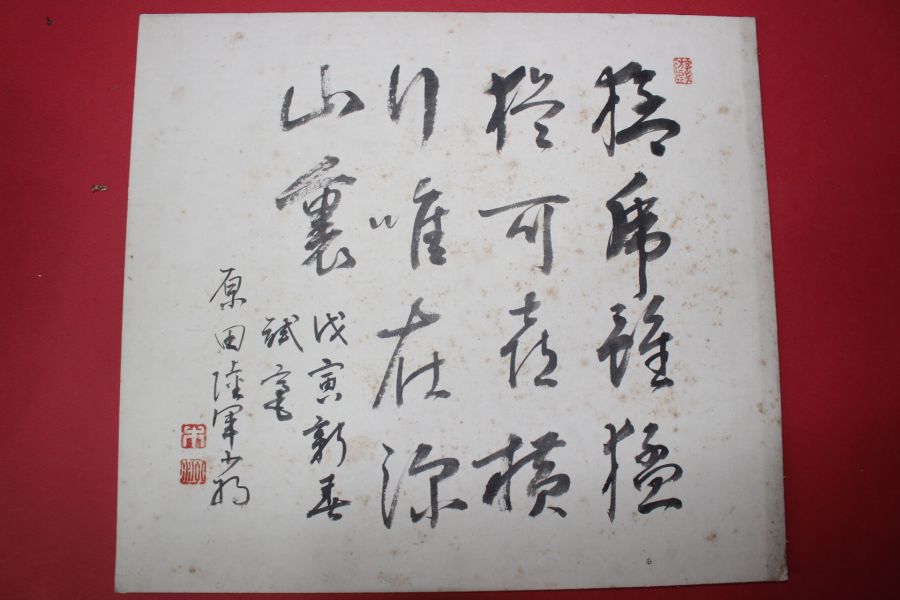 猛虎雖猛
猶可喜横
行唯在深
山裏
戊寅新春
試毫
原田陸軍少将